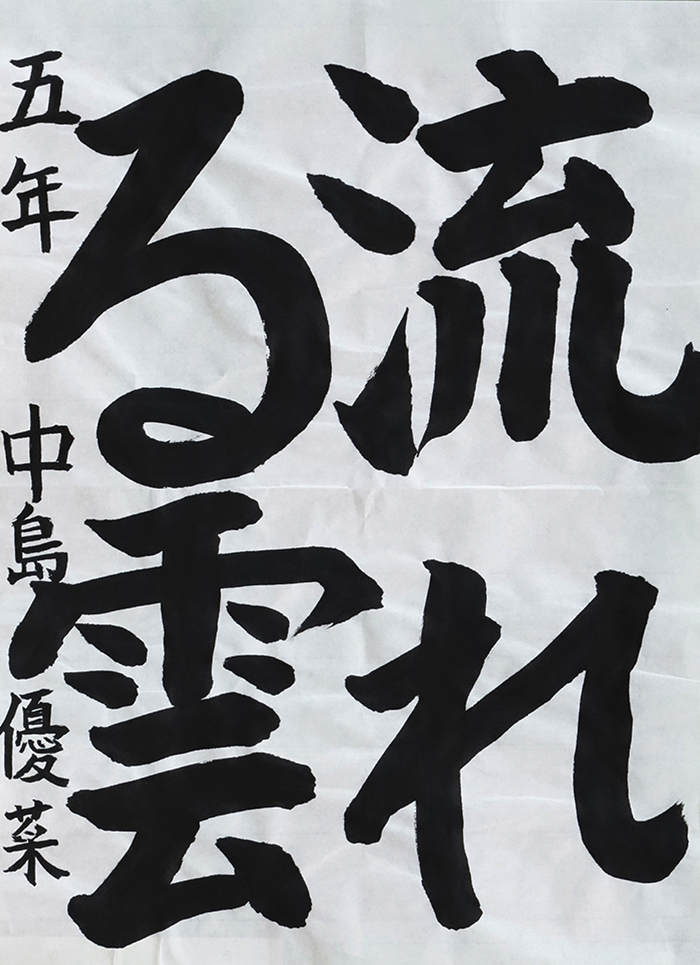 流れ
る雲
五年 中島優菜